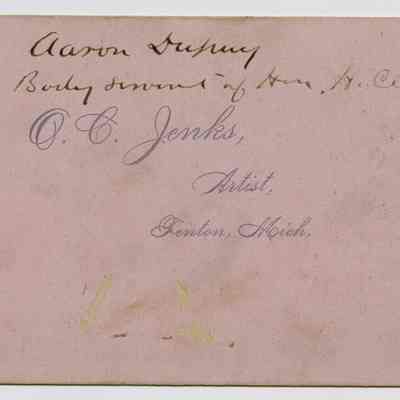 Aaron Dupuy
Body servant of Hon. H. Cl
O. C. Jenks,
Artist,
Fenton, Mich.